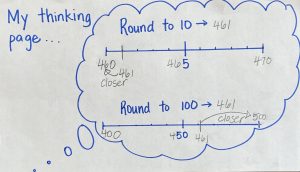 My thinking
page...
Round to 10 → 461
460 465 470
461
closer
Round to 100 → 461
closer
400 450 461 500